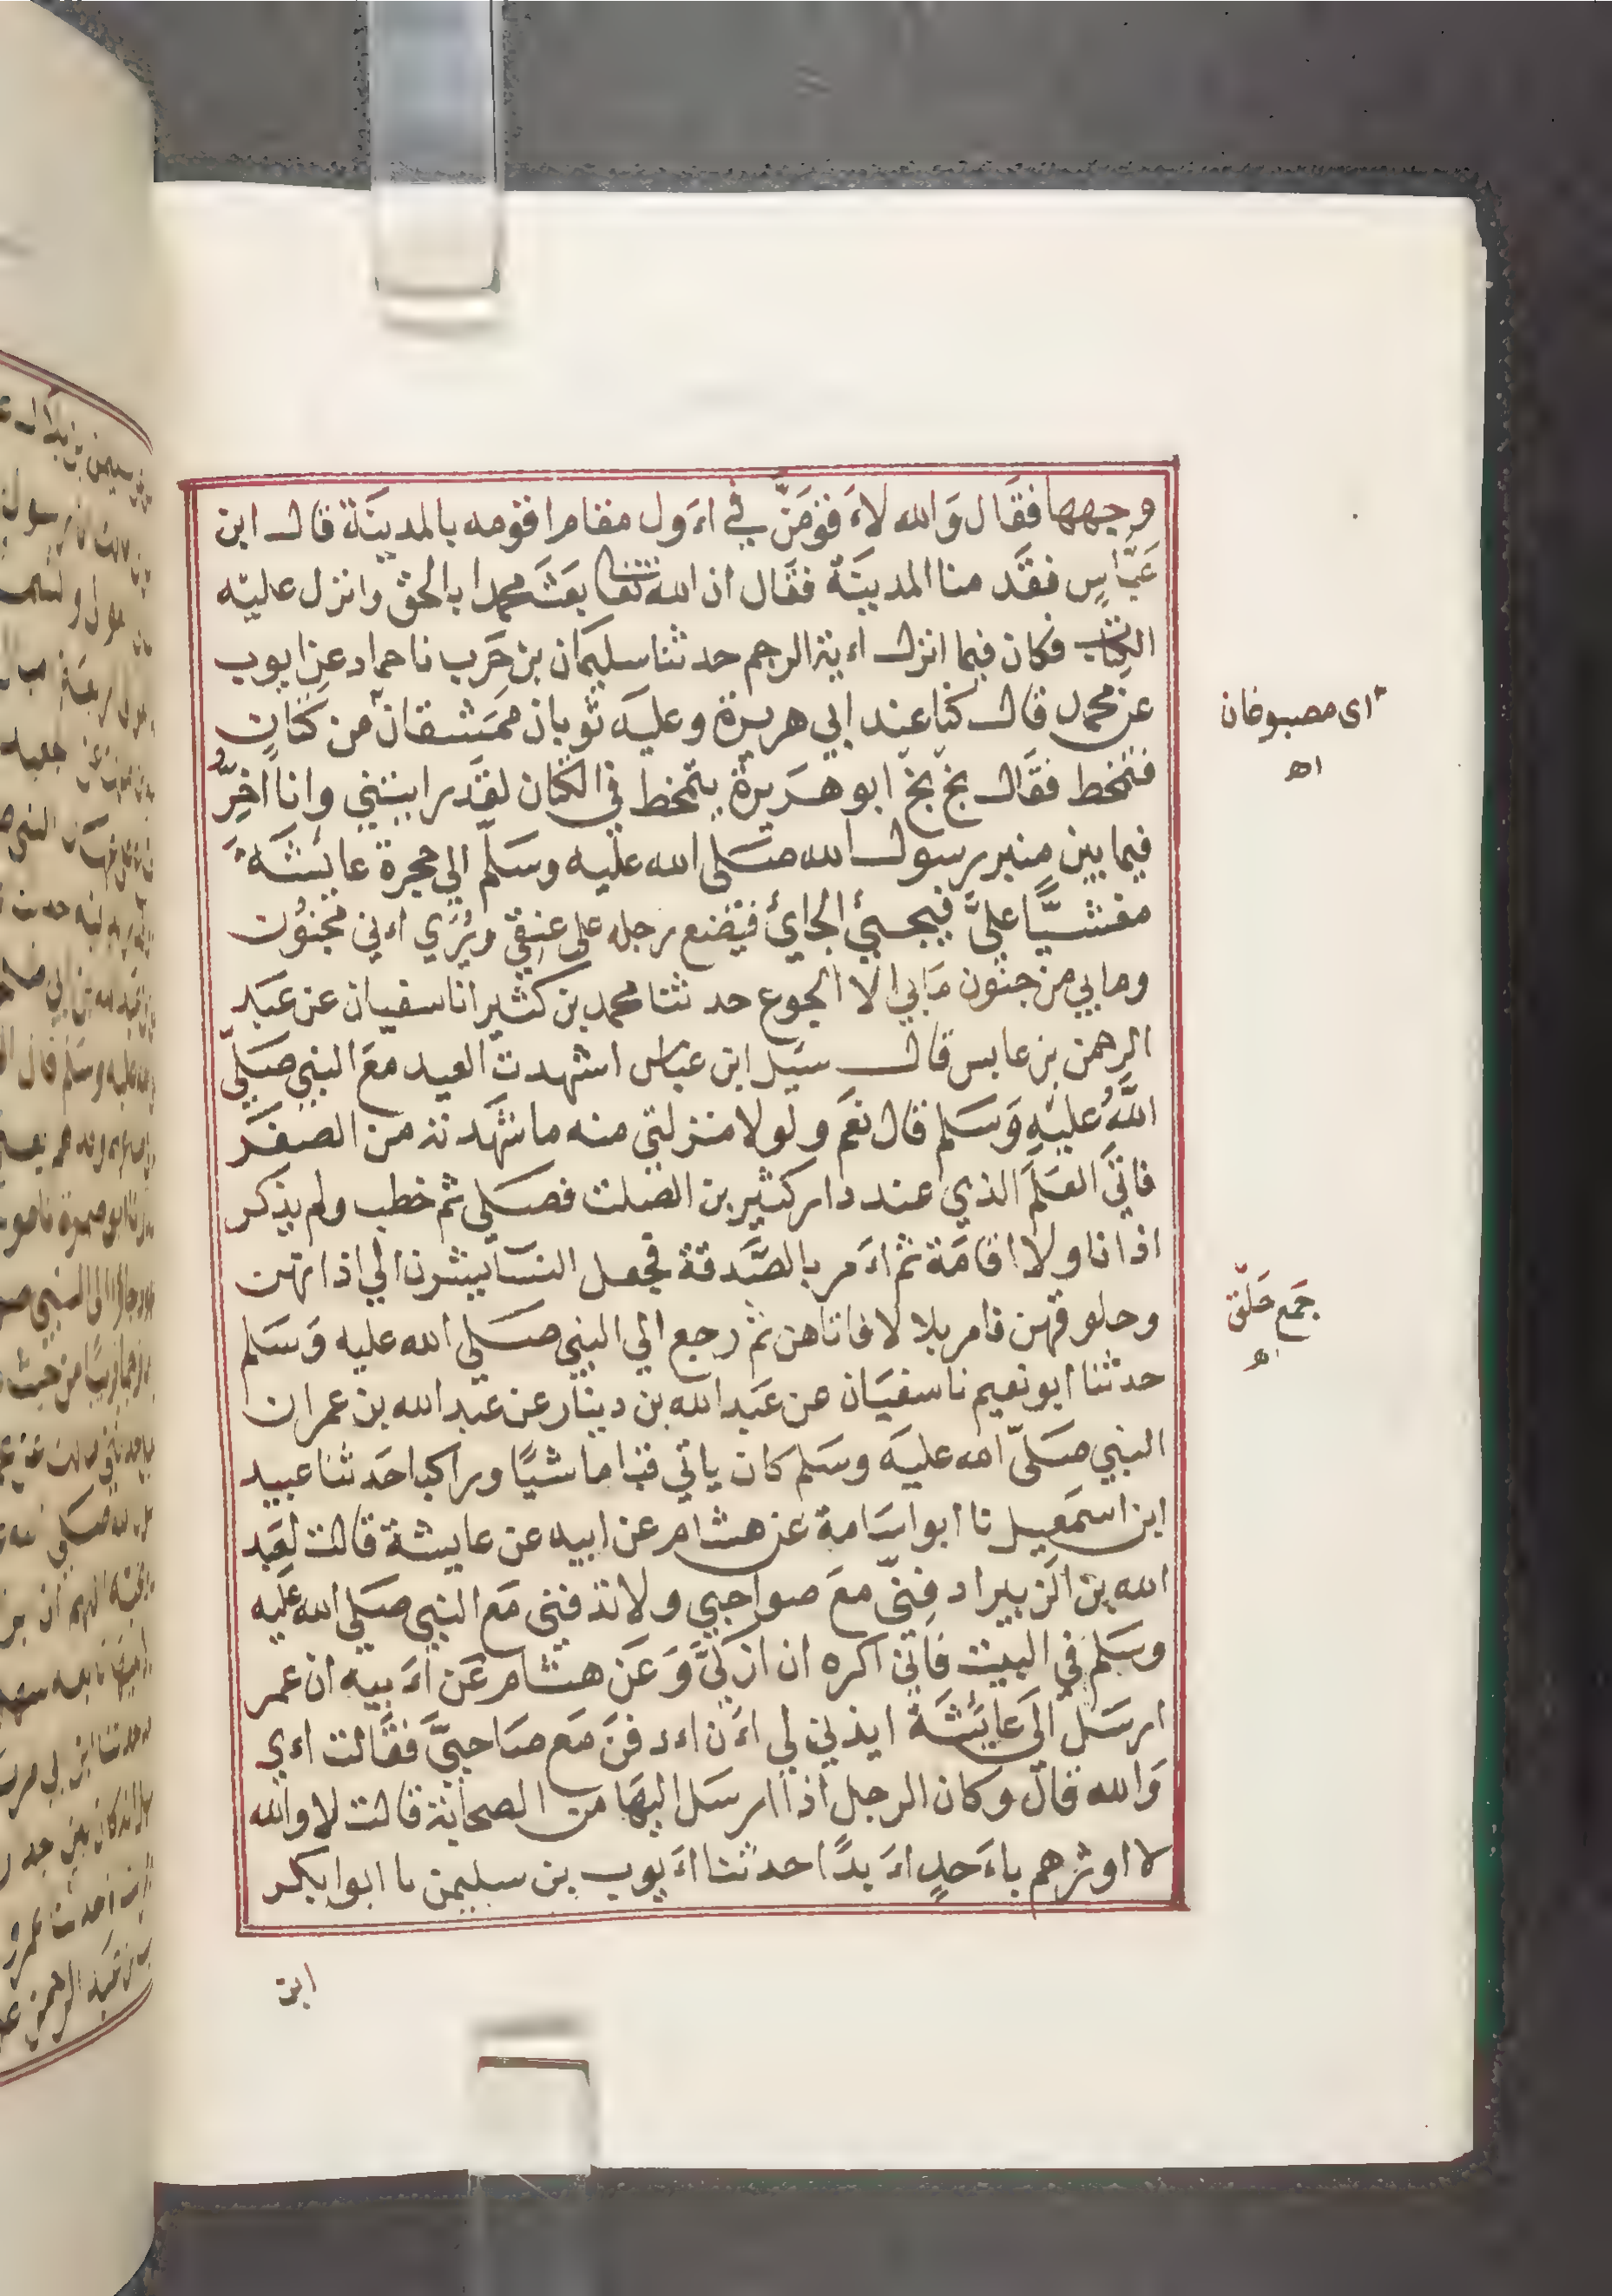 وجهها فقال وَالله لاءَ قومَنَّ في اءَول مقام اقومه بالمدينَة قال ابن
عَبَّاسٍ فقَدمنا المدينَة فقَال ان الله تعَا بعَثَ محمدا بالحق وانزل عليَه
الكتاب فكان فيما انزل اءية الرجم حدثنا سليمَان بن حَرب نا حماد عن ايوب
عن محمد قال كنا عند ابي هريرة وعليَه ثوبان ممَشقان من كَتانٍ
فتمخط فقَال بَخ بَخ ابو هرَيرة يتمخط في الكتان لقَد رايتني واناا خِرُّ
فيما بين منبر رسول الله صَلى الله عليه وسَلم الي حجرة عايشَة
مغشيًّا عليَّ فيجيئ الجائ فيَضع رجله على عنقي ويُرَي اءني مجنوُن
وما بي من جنوُن مَا بي الا الجوع حدثنا محمد بن كثير انا سفيان عن عبَد
الرحمن بن عابس قال سيَل ابن عباس اشهدت العيد معَ النبي صَلىّ
اللهُ عليَهِ وَسَلم قال نعَم ولولا منزلتي منه ما شهَدته من الصغَر
فاتَي العَلَم الذي عند دار كثير بن الصلت فصَلي ثم خطب ولم يذكر
اذانا ولا اقامَة ثم اءَمر بالصَّدقة فجعل النسَا يشرن الي اذانهن
وحلوقهن فامر بلالا فاتاهن ثم رجع الي النبي صَلي الله عليه وَسَلم
حدثنا ابو نعيم نا سفيَان عن عبَد الله بن دينار عن عبد الله بن عمر ان
النبي صَلىّ الله عليَه وسَلم كان ياتي قبا ماشيًا وراكبا حَدثنا عبيد
ابن اسمَعيل نا ابو اسَامة عن هشام عن ابيه عن عايشة قالت لعَبد
الله بن الزبير ادفِنيّ معَ صواحبي ولا تدفني مَع النبي صَلي الله علَيه
وسَلم في البيت فاَني اكره ان ازكيَّ وَعَن هشام عَن اءَبيه ان عمر
ارسَل الَي عايَشَة ايذني لي اءَن اءدفنَ مَع صَاحبيَّ فقَالت اءي
وَالله قال وكان الرجل اذا ارسَل اليهَا من الصحابة قالت لا والله
لا اوثرهم باءَحدٍ اءَبدًا حدثنا اءَيوب بن سليمن نا ابوا بكر
ابن
اى مصبوغان
اه
جَمع حَلْق
اه